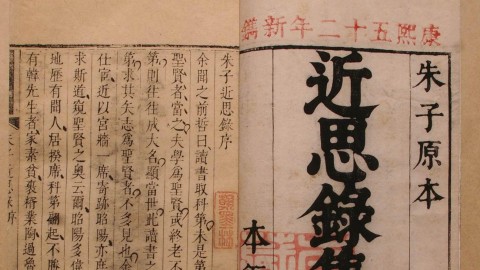 康熙五十二年新鐫
朱子原本
近思錄
本
朱子近思錄序
余聞之前哲曰讀書取科第未是第
聖賢者當之夫學爲聖賢或終老不
第則往往成大名顯當世此讀書之
第求其矢志爲聖賢者不多見也
仕宦近以宮牆一席寄跡昭陽亦
求斯道窺聖賢之奧云爾昭陽多偉
地歷有聞人居揆席科第翩起不勝
有韓先生者家素貧業陶過